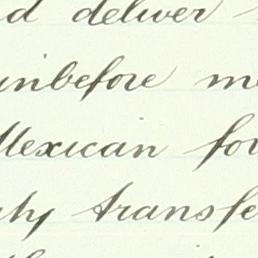 d deliver
inbefore me
Mexican fo
ly transfe